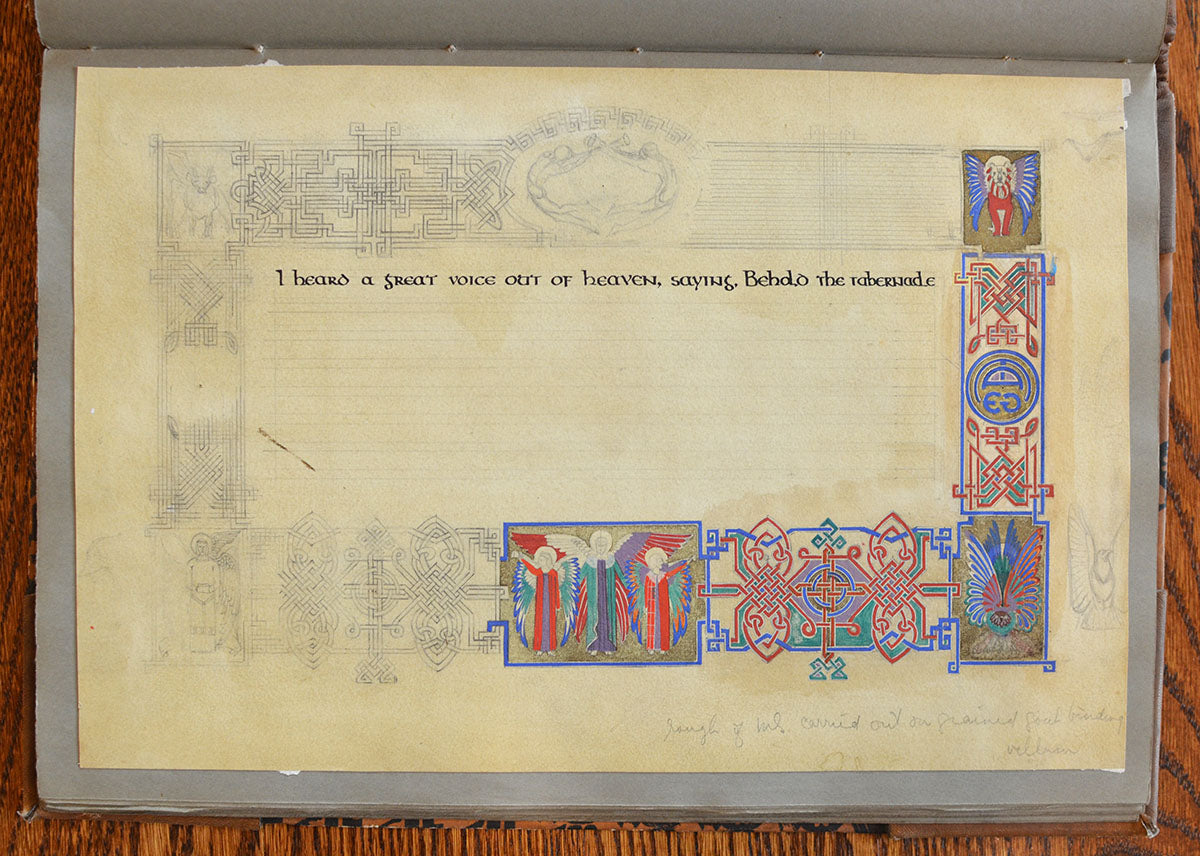 I heard a great voice out of heaven, saying, Behold the tabernacle
rough of MS. carried out on grained goat binding
vellum